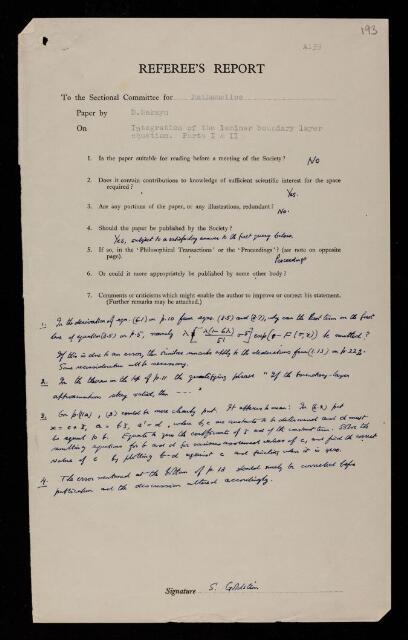 193
A139
REFEREE'S REPORT
To the Sectional Committee for Mathematics
Paper by D. Meksyn
On Integration of the laminar boundary layer
equation. Parts I & II
1. Is the paper suitable for reading before a meeting of the Society? No
2. Does it contain contributions to knowledge of sufficient scientific interest for the space
required? Yes.
3. Are any portions of the paper, or any illustrations, redundant? No.
4. Should the paper be published by the Society?
Yes, subject to a satisfactory answer to the first query below.
5. If so, in the 'Philosophical Transactions' or the 'Proceedings'? (see note on opposite
page). Proceedings
6. Or could it more appropriately be published by some other body?
7. Comments or criticisms which might enable the author to improve or correct his statement.
(Further remarks may be attached.)
1. In the derivation of eqn. (6.1) on p.10 from eqns. (3.5) and (3.7), why can the last term on the first
line of equation (3.5) on p.5, namely be omitted?
If this is due to an error, then similar remarks apply to the deductions from (1.13) on p.22.
Some reconsideration will be necessary.
2. In the theorem on the top of p.11 the quantifying phrase "If the boundary-layer
approximation stays valid, the --- "
3. On p. (a), (b) could be more clearly put. It appears to mean: In put
where b, c are constants to be determined and d must
be equal to b. Equate to zero the coefficients of and of the constant term. Solve the
resulting equations for b and d for various assumed values of c, and find the correct
value of c by plotting b-d against c and finding when it is zero.
4. The error mentioned at the bottom of p.18 should surely be corrected before
publication and the discussion altered accordingly.
Signature S. Goldstein